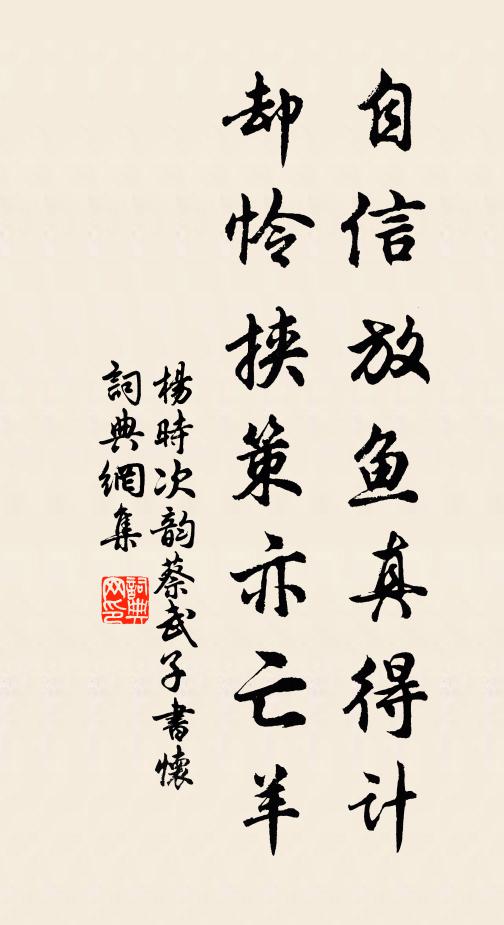 自信放鱼真得计
却怜挟策亦亡羊
杨時次韵蔡武子書懷
詞典網集
詞典網印